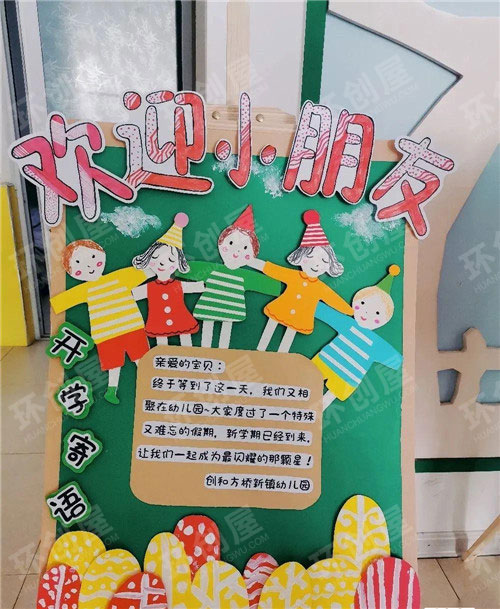 欢迎小朋友
开学寄语
亲爱的宝贝：
终于等到了这一天，我们又相
聚在幼儿园~大家度过了一个特殊
又难忘的假期，新学期已经到来，
让我们一起成为最闪耀的那颗星！
创和方桥新镇幼儿园
环创屋
HUANCHUANGWU.COM